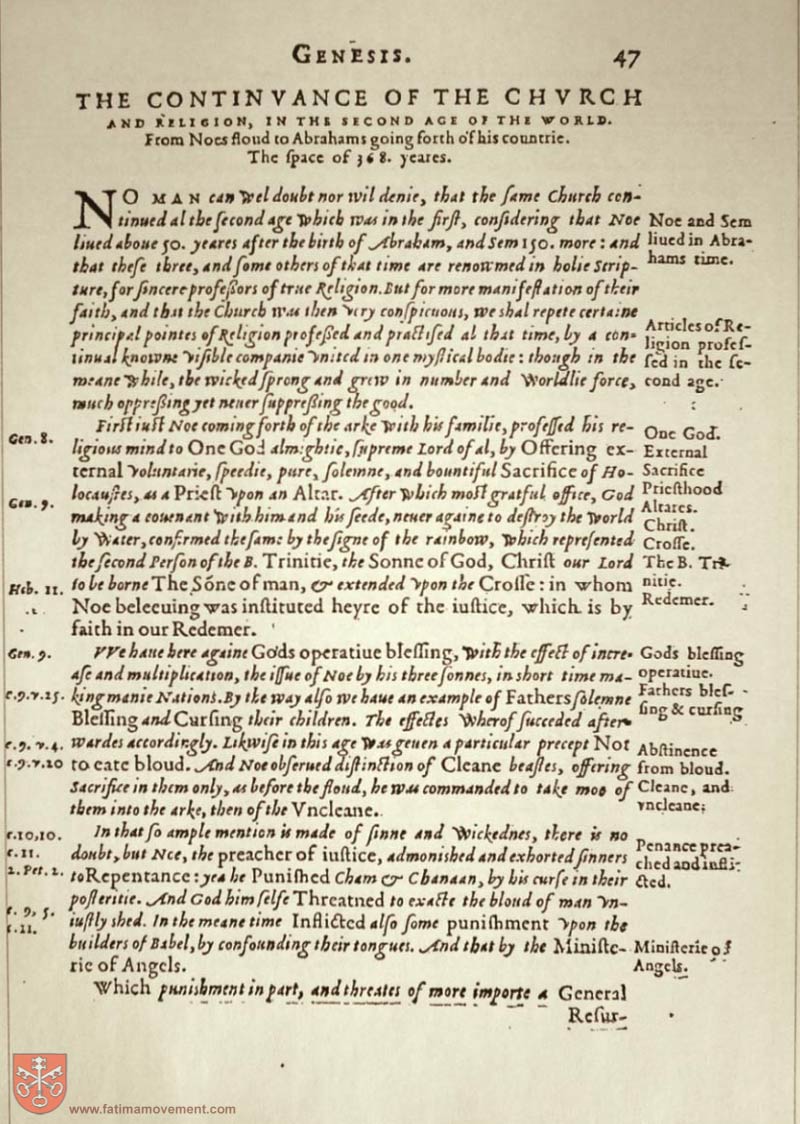 GENESIS. 47
THE CONTINVANCE OF THE CHVRCH
AND RELIGION, IN THE SECOND AGE OF THE WORLD.
From Noes floud to Abrahams going forth of his countrie.
The space of 368. yeares.
NO MAN can wel doubt nor wil denie, that the same Church con-
tinued al the second age which was in the first, considering that Noe
liued aboue 50. yeares after the birth of Abraham, and Sem 150. more: and
that these three, and some others of that time are renowmed in holie Scrip-
ture, for sincere professors of true Religion. But for more manifestation of their
faith, and that the Church was then very conspicuous, we shal repete certaine
principal pointes of Religion professed and practised al that time, by a con-
tinual knowne visible companie vnited in one mystical bodie: though in the
meane while, the wicked sprong and grew in number and worldlie force,
much oppressing yet neuer suppressing the good.
First iust Noe coming forth of the arke with his familie, professed his re-
ligious mind to One God almightie, supreme Lord of al, by Offering ex-
ternal voluntarie, speedie, pure, solemne, and bountiful Sacrifice of Ho-
locaustes, as a Priest vpon an Altar. After which most grateful office, God
making a couenant with him and his seede, neuer againe to destroy the world
by water, confirmed the same by the signe of the rainbow, which represented
the second Person of the B. Trinitie, the Sonne of God, Christ our Lord
to be borne The Sōne of man, & extended vpon the Crosse: in whom
Noe beleeuing was instituted heyre of the iustice, which is by
faith in our Redemer.
VVe haue here againe Gods operatiue blessing, with the effect of incre-
ase and multiplication, the issue of Noe by his three sonnes, in short time ma-
king manie Nations. By the way also we haue an example of Fathers solemne
Blessing and Cursing their children. The effectes wherof succeded after-
wardes accordingly. Likwise in this age was geuen a particular precept Not
to eate bloud. And Noe obserued distinction of Cleane beastes, offering
Sacrifice in them only, as before the floud, he was commanded to take moe of
them into the arke, then of the Vncleane.
In that so ample mention is made of sinne and wickednes, there is no
doubt, but Noe, the preacher of iustice, admonished and exhorted sinners
to Repentance: yea he Punished Cham & Chanaan, by his curse in their
posteritie. And God him selfe Threatned to exacte the bloud of man vn-
iustly shed. In the meane time Inflicted also some punishment vpon the
builders of Babel, by confounding their tongues. And that by the Ministe-
rie of Angels.
Which punishment in part, and threates of more importe a General
Resur-
Noe and Sem
liued in Abra-
hams time.
Articles of Re-
ligion profes-
sed in the se-
cond age.
One God.
External
Sacrifice
Priesthood
Altares.
Christ.
Crosse.
The B. Tri-
nitie.
Redemer.
Gods blessing
operatiue.
Fathers bles-
sing & cursing
Abstinence
from bloud.
Cleane, and
vncleane;
Penance prea-
ched and infli-
cted.
Ministerie of
Angels.
Gen. 8.
Gen. 9.
Heb. 11.
Gen. 9.
c. 9. v. 25.
c. 9. v. 4.
c. 9. v. 20
c. 10, 10.
c. 11.
2. Pet. 2.
c. 9, 5.
c. 11.
www.fatimamovement.com